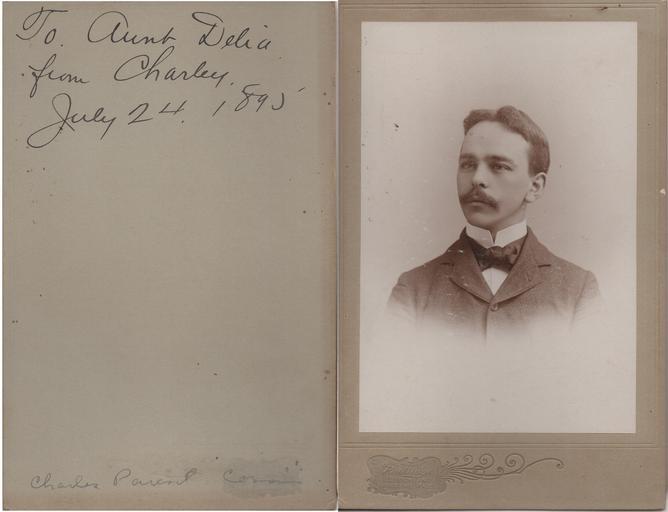 To. Aunt Delia
from Charley.
July 24. 1895
Charles Parent